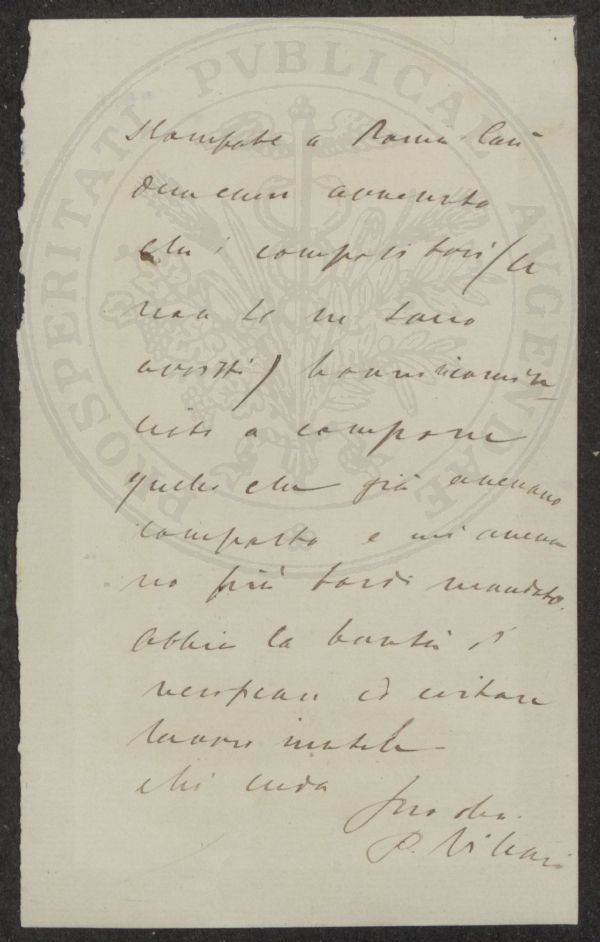 PROSPERITATI PVBLICAE AVGENDAE
stampate a Roma. Così
deve essere avvenuto
che i compositori (e
non se ne sono
avvisti) hanno incomin
ciato a comporre
quello che già avevano
composto e mi aveva
no più tardi mandato.
Abbia la bontà di
verificare ed evitare
lavoro inutile.
Mi creda
Suo dev.
P. Villari